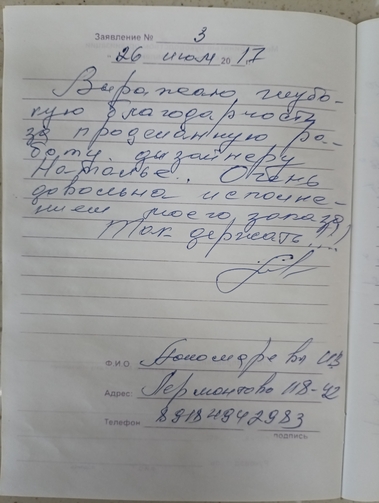 Заявление № 3
26 июля 2017
Выражаю глубо-
кую благодарность
за проделанную ра-
боту дизайнеру
Наталье. Очень
довольна исполне-
нием моего заказа!
Так держать....
Ф.И.О. Пономарёва
Адрес: Лермонтова 118-42
Телефон 89184942983
подпись
Ф.И.О.